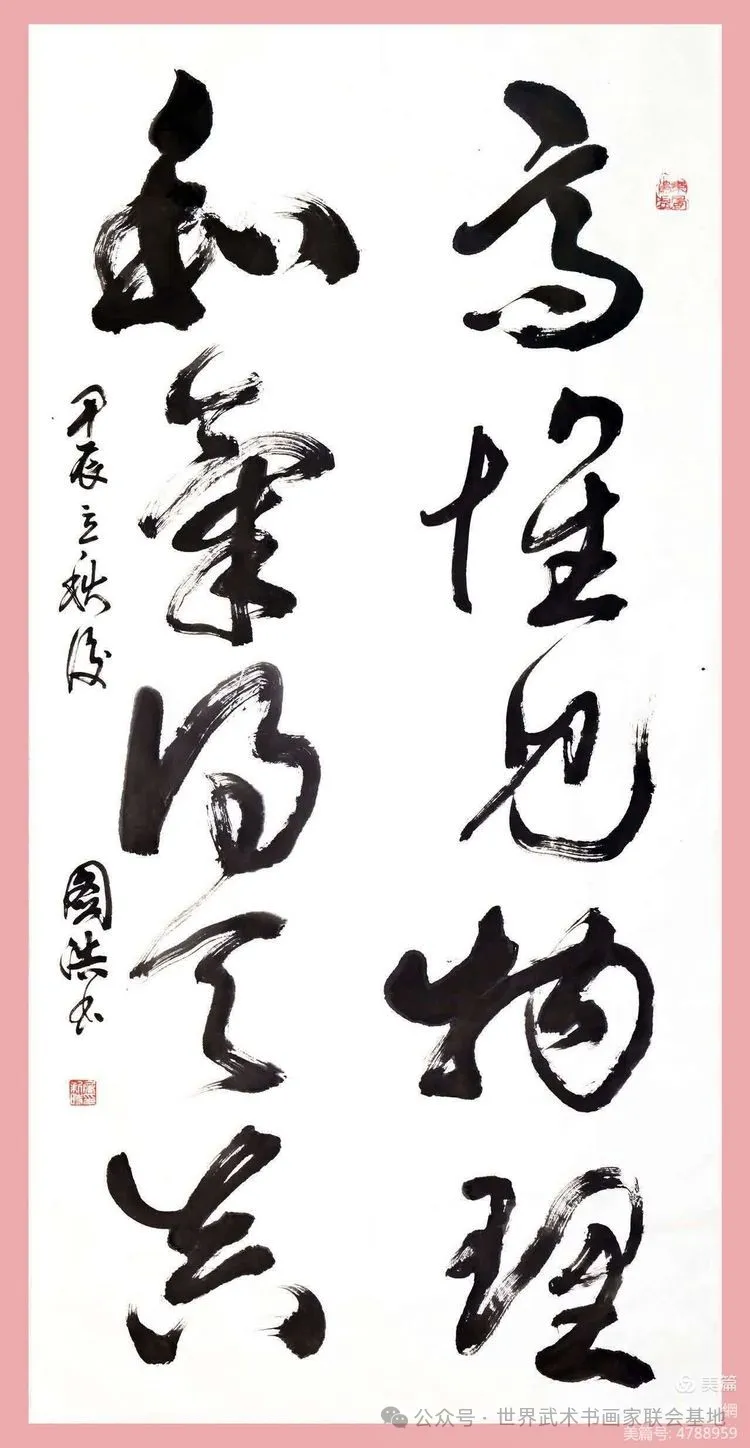 高懷見物理
和氣得天真
甲辰立秋後
國 书
美篇
公众号 · 世界武术书画家联会基地
美篇号: 4788959